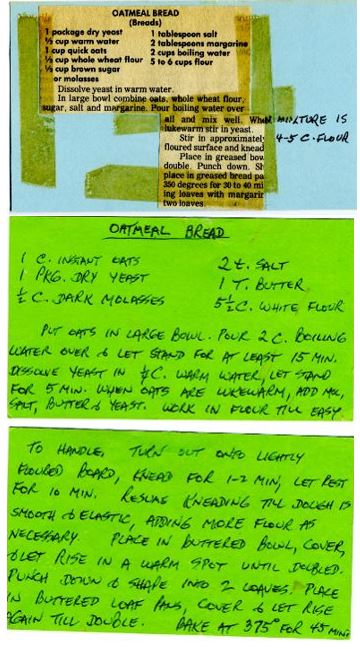 OATMEAL BREAD
(Breads)
1 package dry yeast
½ cup warm water
1 cup quick oats
½ cup whole wheat flour
½ cup brown sugar
or molasses
1 tablespoon salt
2 tablespoons margarine
2 cups boiling water
5 to 6 cups flour
Dissolve yeast in warm water.
In large bowl combine oats, whole wheat flour,
sugar, salt and margarine. Pour boiling water over
all and mix well. When MIXTURE IS
lukewarm stir in yeast.
Stir in approximately 4-5 C. FLOUR
floured surface and knead
Place in greased bow
double. Punch down. Sh
place in greased bread pa
350 degrees for 30 to 40 mi
ing loaves with margarin
two loaves.
OATMEAL BREAD
1 C. INSTANT OATS
1 PKG. DRY YEAST
½ C. DARK MOLASSES
2 t. SALT
1 T. BUTTER
5½ C. WHITE FLOUR
PUT OATS IN LARGE BOWL. POUR 2 C. BOILING
WATER OVER & LET STAND FOR AT LEAST 15 MIN.
DISSOLVE YEAST IN ½ C. WARM WATER, LET STAND
FOR 5 MIN. WHEN OATS ARE LUKEWARM, ADD
SALT, BUTTER & YEAST. WORK IN FLOUR TILL EASY
TO HANDLE. TURN OUT ONTO LIGHTLY
FLOURED BOARD, KNEAD FOR 1-2 MIN, LET REST
FOR 10 MIN. RESUME KNEADING TILL DOUGH IS
SMOOTH & ELASTIC, ADDING MORE FLOUR AS
NECESSARY. PLACE IN BUTTERED BOWL, COVER,
& LET RISE IN A WARM SPOT UNTIL DOUBLED.
PUNCH DOWN & SHAPE INTO 2 LOAVES. PLACE
IN BUTTERED LOAF PANS, COVER & LET RISE
AGAIN TILL DOUBLE. BAKE AT 375° FOR 45 MIN.